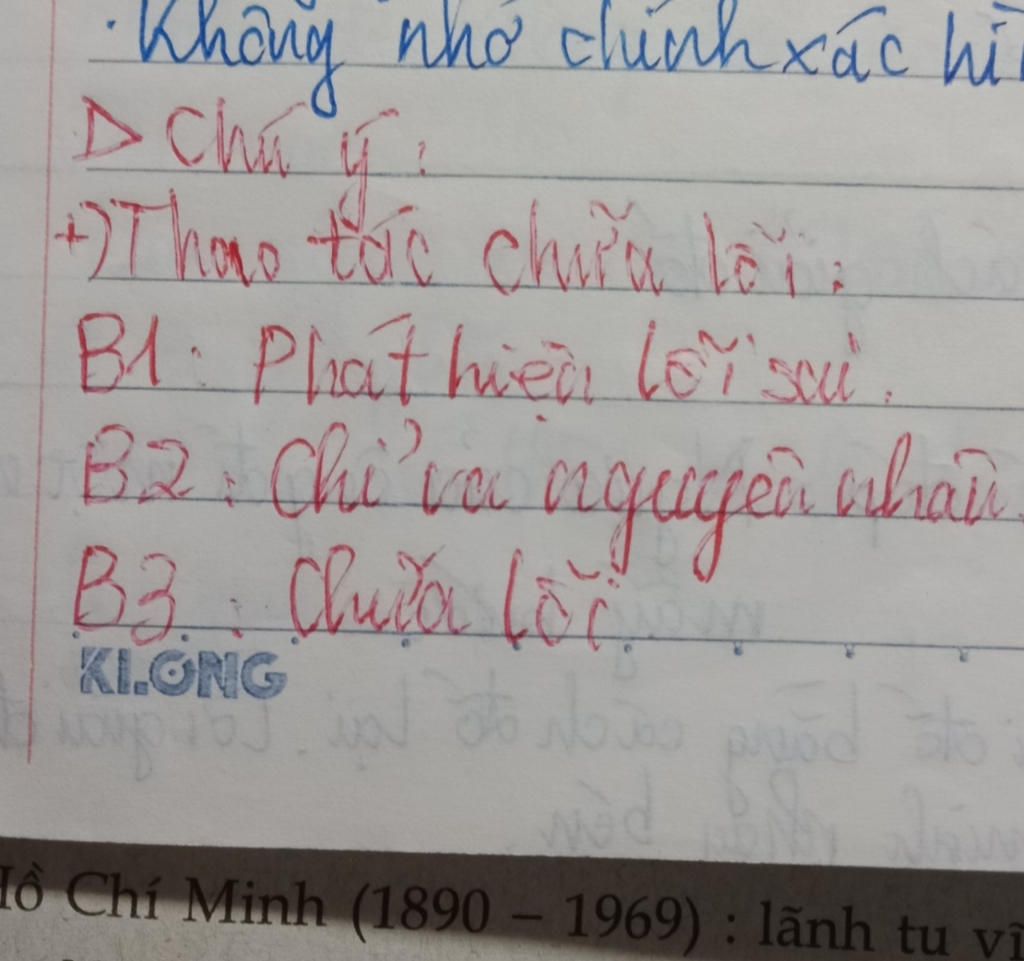 · Không nhớ chính xác hì
▷ Chú ý:
+) Thao tác chữa lỗi:
B1: Phát hiện lỗi sai.
B2: Chỉ ra nguyên nhân.
B3: Chữa lỗi
KLONG
Hồ Chí Minh (1890 – 1969) : lãnh tụ vĩ